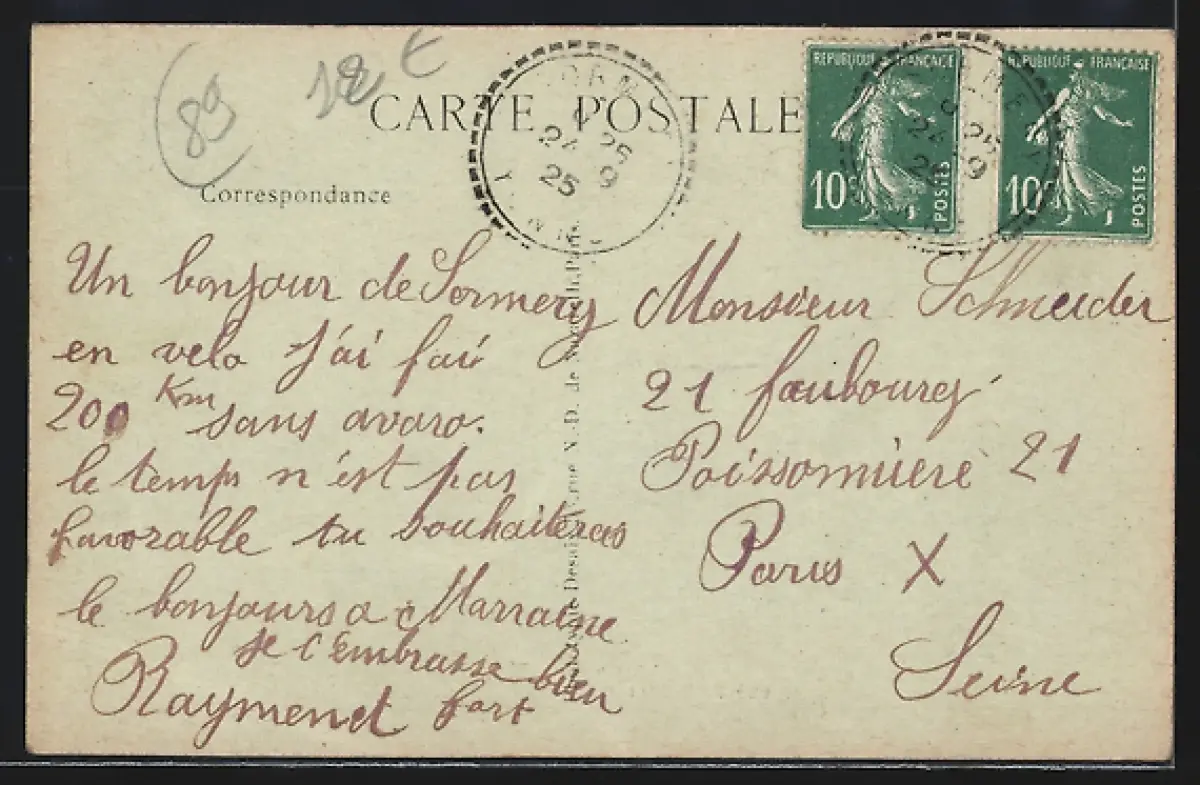 89
12 €
CARTE POSTALE
Correspondance
SORMERY
24 25
25 9
YONNE
REPUBLIQUE FRANÇAISE
10c POSTES
REPUBLIQUE FRANÇAISE
10c POSTES
Un bonjour de Sormery
en velo j'ai fai
200 Km sans avaro.
le temps n'est pas
favorable tu souhaiteras
le bonjours a Marraine
je t'embrasse bien
fort
Raymond
Monsieur Schneider
21 faubourg
Poissonniere 21
Paris X
Seine
N.D. de
Paris.